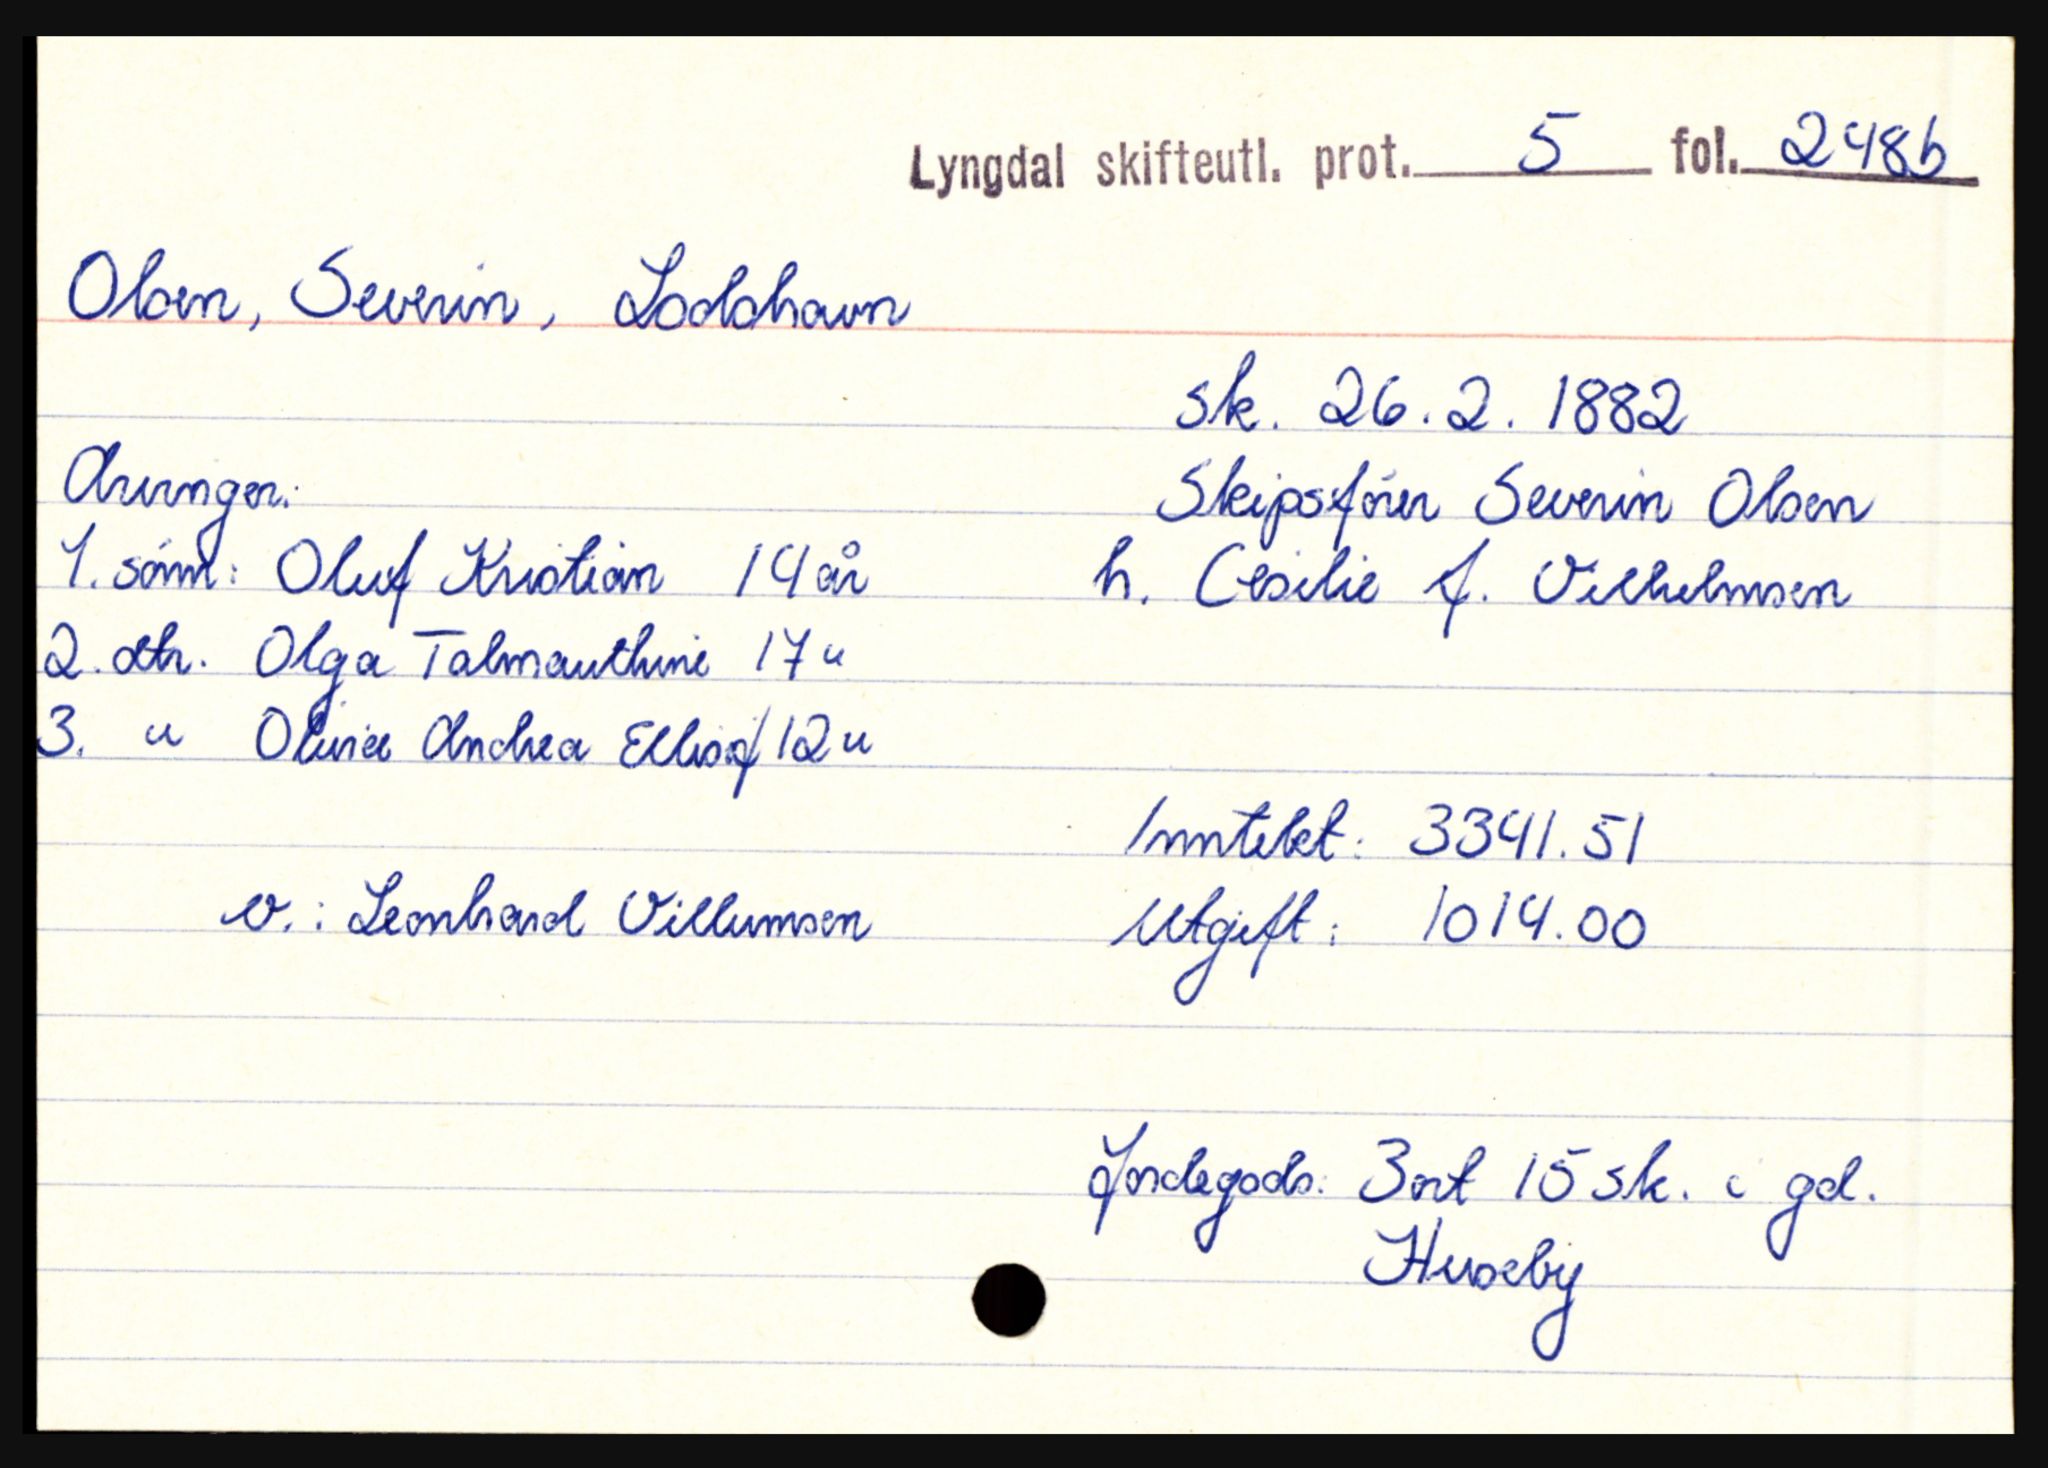 Lyngdal skifteutl. prot. 5 fol. 248b
Olsen, Severin, Loddhavn
sk. 26.2.1882
Arvinger: Skipsfører Severin Olsen
1. sønn: Oluf Kristian 14 år h. Cesilie f. Vilhelmsen
2. dtr. Olga Talmauthine 17 "
3. " Olivia Andrea 12 "
Inntekt: 3341.51
v.: Leonhard Villumsen Utgift: 1014.00
Jordegods: 3 ort 15 sk. i gd.
Huseby